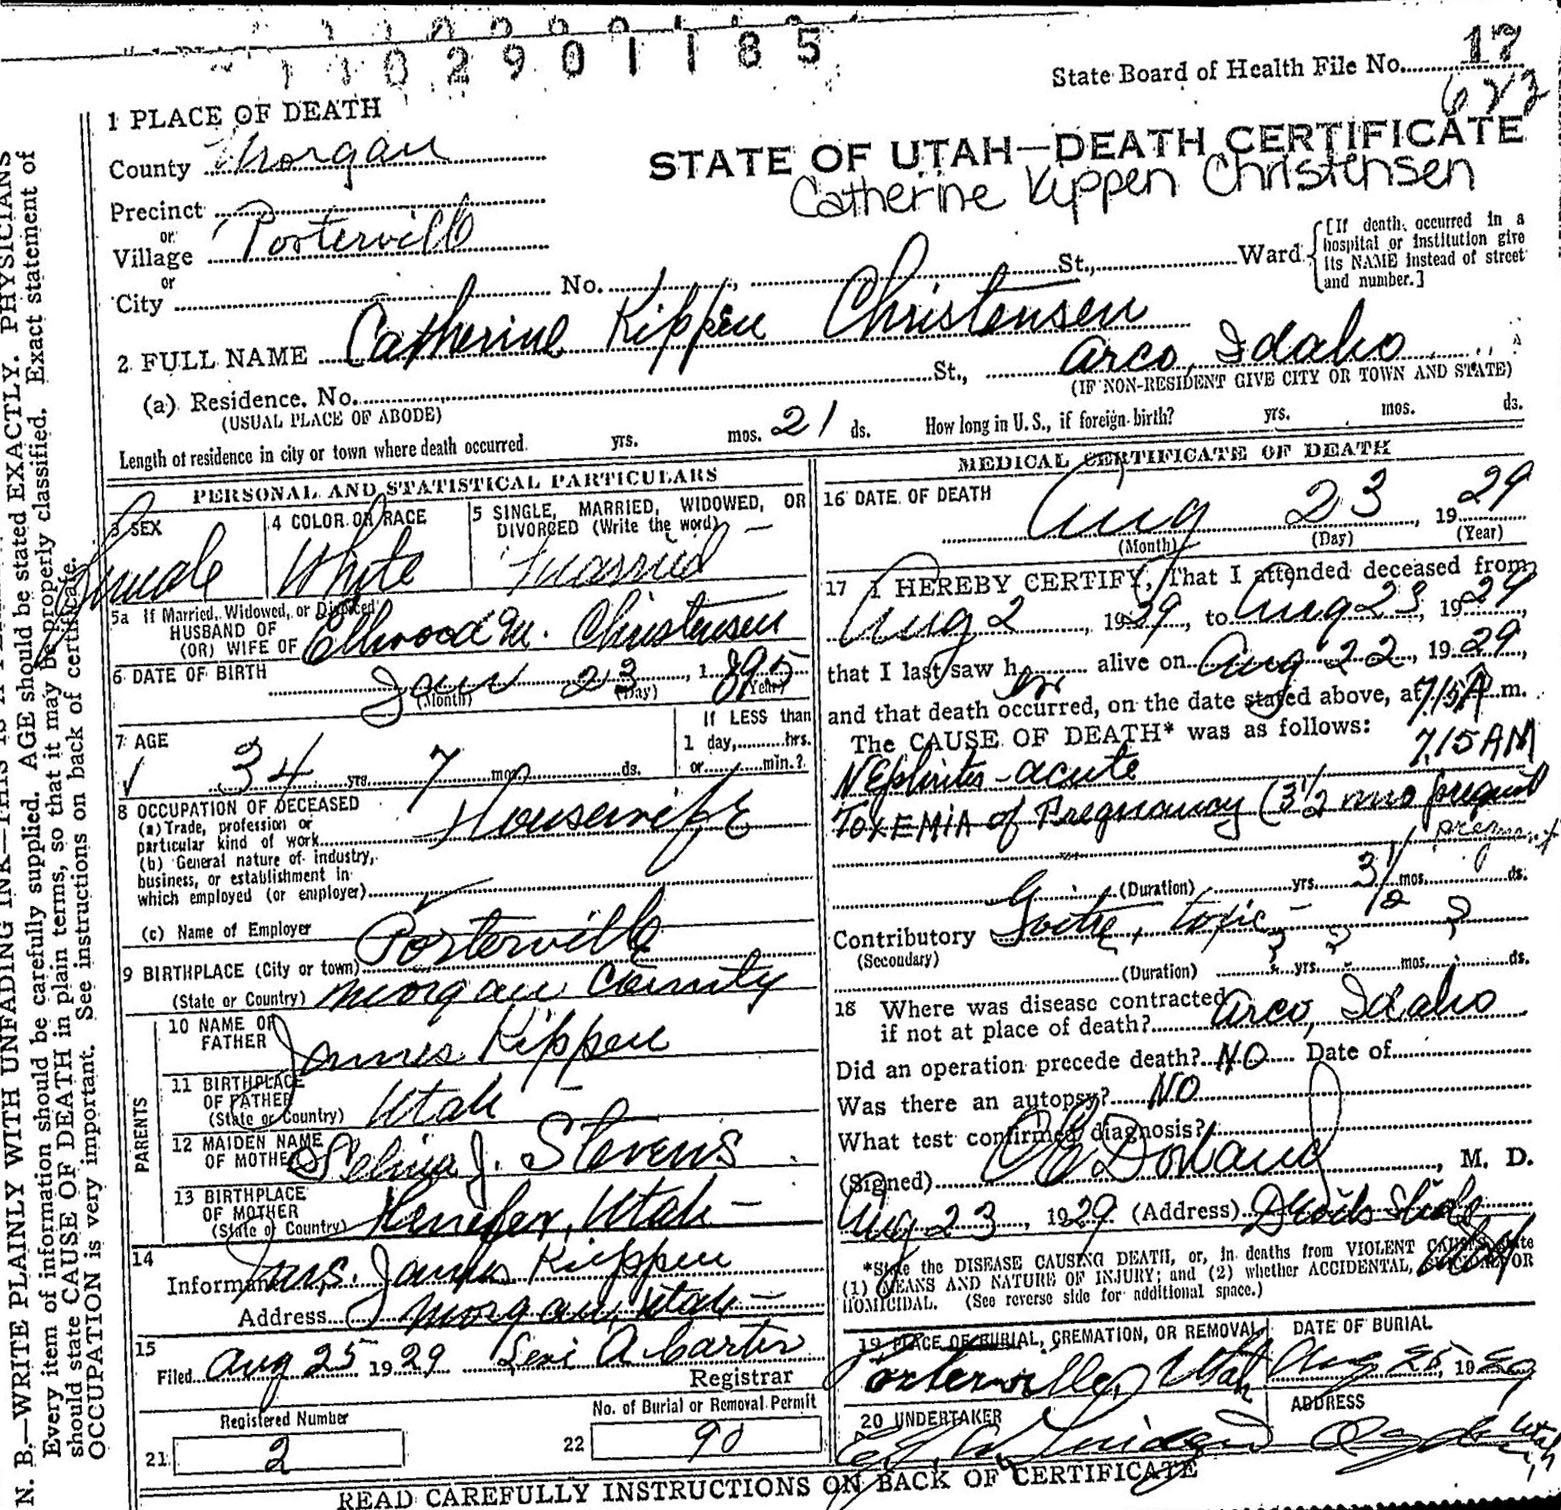 2901185
State Board of Health File No. 17
1 PLACE OF DEATH
County Morgan
STATE OF UTAH—DEATH CERTIFICATE
Catherine Kippen Christensen
Precinct
or
Village Porterville
or
City No. St., Ward
[If death occurred in a hospital or institution give its NAME instead of street and number.]
2 FULL NAME Catherine Kippen Christensen
(a) Residence. No. St., Arco, Idaho
(USUAL PLACE OF ABODE) (IF NON-RESIDENT GIVE CITY OR TOWN AND STATE)
Length of residence in city or town where death occurred. yrs. mos. 21 ds. How long in U. S., if foreign birth? yrs. mos. ds.
PERSONAL AND STATISTICAL PARTICULARS
3 SEX 4 COLOR OR RACE 5 SINGLE, MARRIED, WIDOWED, OR
DIVORCED (Write the word)
Female White Married
5a If Married, Widowed, or Divorced
HUSBAND OF
(OR) WIFE OF Ellwood M. Christensen
6 DATE OF BIRTH Jan 23, 1895
(Month) (Day) (Year)
7 AGE 34 yrs. 7 mos. ds.
If LESS than
1 day, hrs.
or min.?
8 OCCUPATION OF DECEASED
(a) Trade, profession or
particular kind of work Housewife
(b) General nature of industry,
business, or establishment in
which employed (or employer)
(c) Name of Employer
9 BIRTHPLACE (City or town) Porterville
(State or Country) Morgan County
PARENTS
10 NAME OF
FATHER James Kippen
11 BIRTHPLACE
OF FATHER
(State or Country) Utah
12 MAIDEN NAME
OF MOTHER Selina J. Stevens
13 BIRTHPLACE
OF MOTHER
(State or Country) Henefer, Utah
14
Informant Mrs. James Kippen
Address Morgan, Utah
15
Filed Aug 25 1929 Levi A Carter
Registrar
Registered Number No. of Burial or Removal Permit
21 2 22 90
MEDICAL CERTIFICATE OF DEATH
16 DATE OF DEATH Aug 23, 1929
(Month) (Day) (Year)
17 I HEREBY CERTIFY, That I attended deceased from
Aug 2, 1929, to Aug 23, 1929,
that I last saw her alive on Aug 22, 1929,
and that death occurred, on the date stated above, at 7/15A m.
The CAUSE OF DEATH* was as follows: 7.15 AM
Nephritis - acute
Toxemia of Pregnancy (3½ mo pregnant
pregnant
(Duration) yrs. 3½ mos. ds.
Contributory Goitre, toxic -
(Secondary)
(Duration) ? yrs. ? mos. ? ds.
18 Where was disease contracted
if not at place of death? Arco, Idaho
Did an operation precede death? NO Date of
Was there an autopsy? NO
What test confirmed diagnosis?
(Signed) , M. D.
Aug 23, 1929 (Address) Devils Slide
Utah
*State the DISEASE CAUSING DEATH, or, in deaths from VIOLENT CAUSES, state
(1) MEANS AND NATURE OF INJURY; and (2) whether ACCIDENTAL, SUICIDAL, OR
HOMICIDAL. (See reverse side for additional space.)
19 PLACE OF BURIAL, CREMATION, OR REMOVAL DATE OF BURIAL
Porterville, Utah Aug 25, 1929
20 UNDERTAKER ADDRESS
Ogden, Utah
READ CAREFULLY INSTRUCTIONS ON BACK OF CERTIFICATE
N. B.—WRITE PLAINLY WITH UNFADING INK—THIS IS A
Every item of information should be carefully supplied. AGE should be stated EXACTLY. PHYSICIANS
should state CAUSE OF DEATH in plain terms, so that it may be properly classified. Exact statement of
OCCUPATION is very important. See instructions on back of certificate.